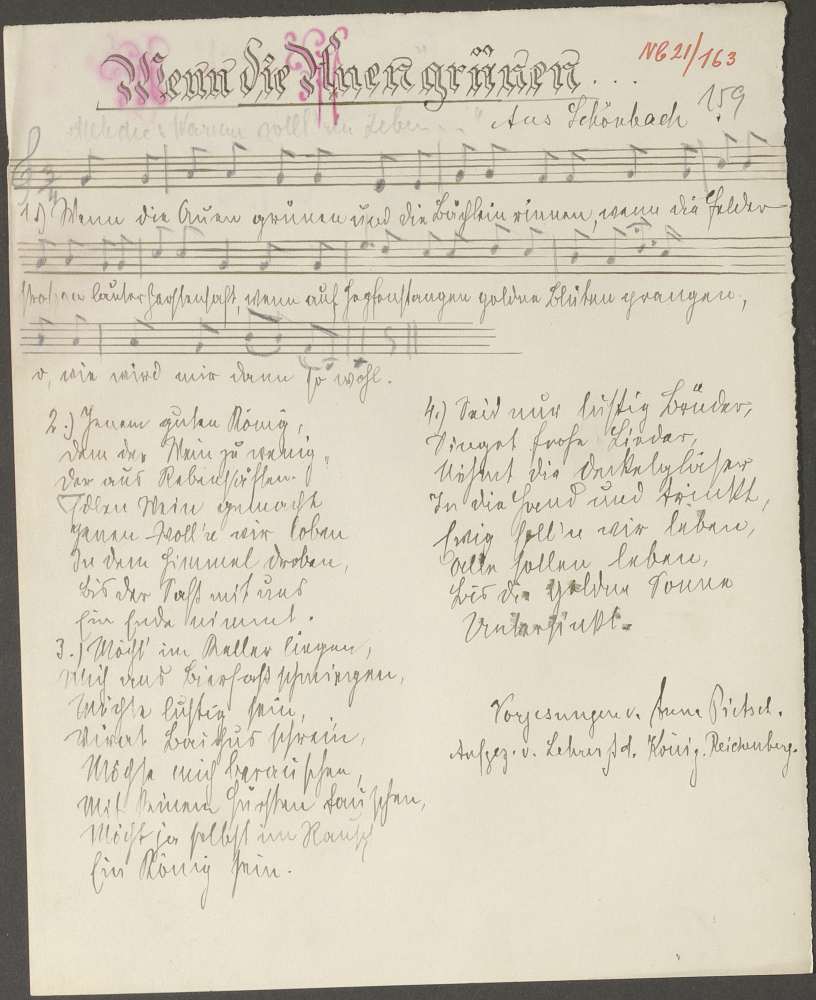 Wenn die Auen grünen...
NB 21/163
159
Melodie: "Warum sollt im Leben..."
Aus Schönbach
1.) Wenn die Auen grünen und die Bächlein rinnen, wenn die Felder
strotzen lauter Gerstensaft, wenn auf Hopfenstangen goldne Blüten prangen,
o, wie wird mir dann so wohl.
2.) Jenem guten König,
dem der Wein zu wenig,
der aus Rebensäften
Edlen Wein gemacht
Jenen woll'n wir loben
In dem Himmel droben,
Bis der Saft mit uns
Ein Ende nimmt.
3.) Möcht' im Keller liegen,
Mich ans Bierfaß schmiegen,
Möchte lustig sein,
Vivat Bachus schrein,
Möchte mich berauschen,
Mit keinem Fürsten tauschen,
Möcht ja selbst im Rausch
Ein König sein.
4.) Seid nur lustig Brüder,
Singet frohe Lieder,
Nehmt die Deckelgläser
In die Hand und trinkt,
Ewig soll'n wir leben,
Alle sollen leben,
Bis die goldne Sonne
Untersinkt.
Vorgesungen v. Anna Pietsch.
Aufgez. v. Lehrer Fd. König. Reichenberg.